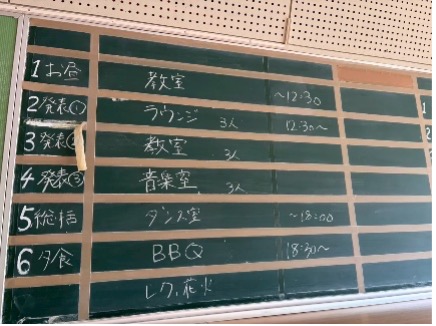 1 お昼 教室 ~12:30
2 発表① ラウンジ 3人 12:30~
3 発表② 教室 3人
4 発表③ 音楽室 3人
5 総括 ダンス室 ~18:00
6 夕食 BBQ 18:30~
レク, 花火